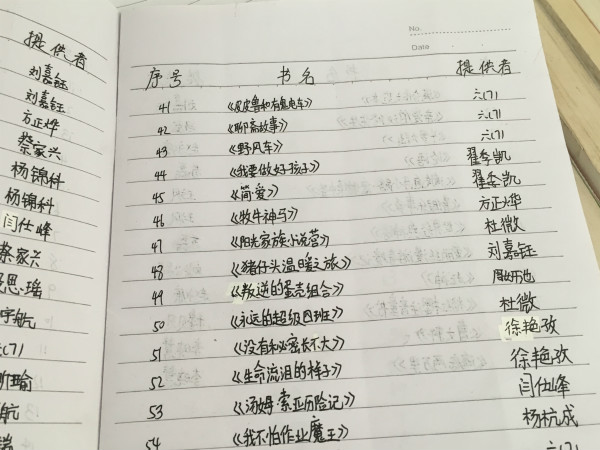 提供者
刘嘉钰
刘嘉钰
方正烨
蔡家兴
杨锦科
杨锦科
闫仕峰
蔡家兴
思瑶
宇航
(7)
瑜
航
No.
Date
序号 书名 提供者
41 《皮皮鲁和有鬼电车》 六(7)
42 《聊斋故事》 六(7)
43 《野风车》 六(7)
44 《我要做好孩子》 翟季凯
45 《简爱》 翟季凯
46 《牧牛神马》 方正烨
47 《阳光家族小说营》 杜微
48 《猪仔头温暖之旅》 刘嘉钰
49 《叛逆的蛋壳组合》
50 《永远的超级四班》 杜微
51 《没有秘密长不大》 徐艳孜
52 《生命流泪的样子》 徐艳孜
53 《汤姆·索亚历险记》 闫仕峰
54 《我不怕作业魔王》 杨杭成
六(7)